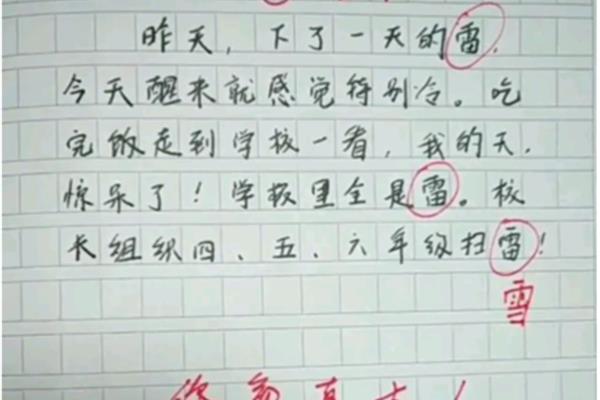 昨天，下了一天的雷，
今天醒来就感觉特别冷。吃
完饭走到学校一看，我的天，
惊呆了！学校里全是雷。校
长组织四、五、六年级扫雷！
雪